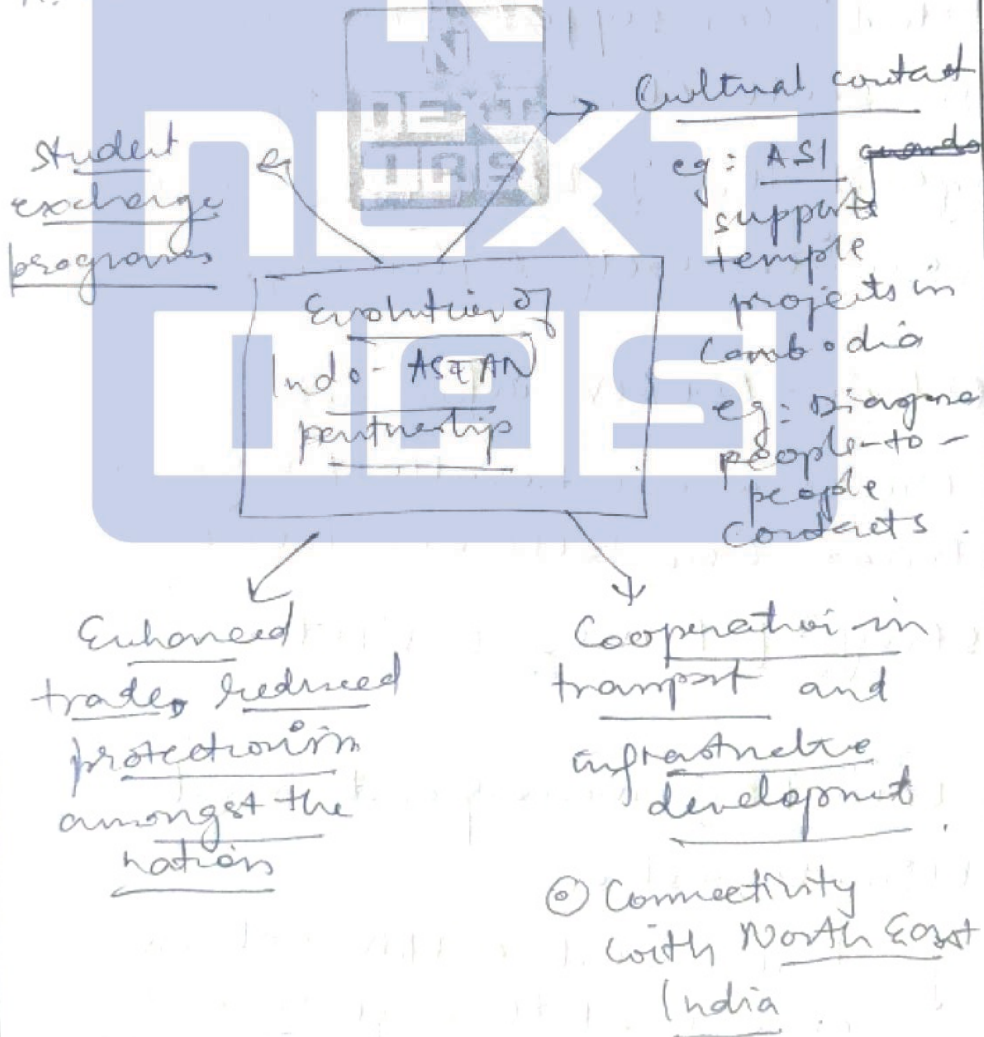 NEXT
IAS
N
NEXT
IAS
Student
exchange
programes
Cultural contact
eg: ASI
supports
temple
projects in
Cambodia
eg: Diaspora
people-to-
people
Contacts.
Evolution of
Indo-ASEAN
partnership
Enhanced
trade, reduced
protectionism
amongst the
nations
Cooperation in
transport and
infrastructure
development.
Connectivity
with North East
India